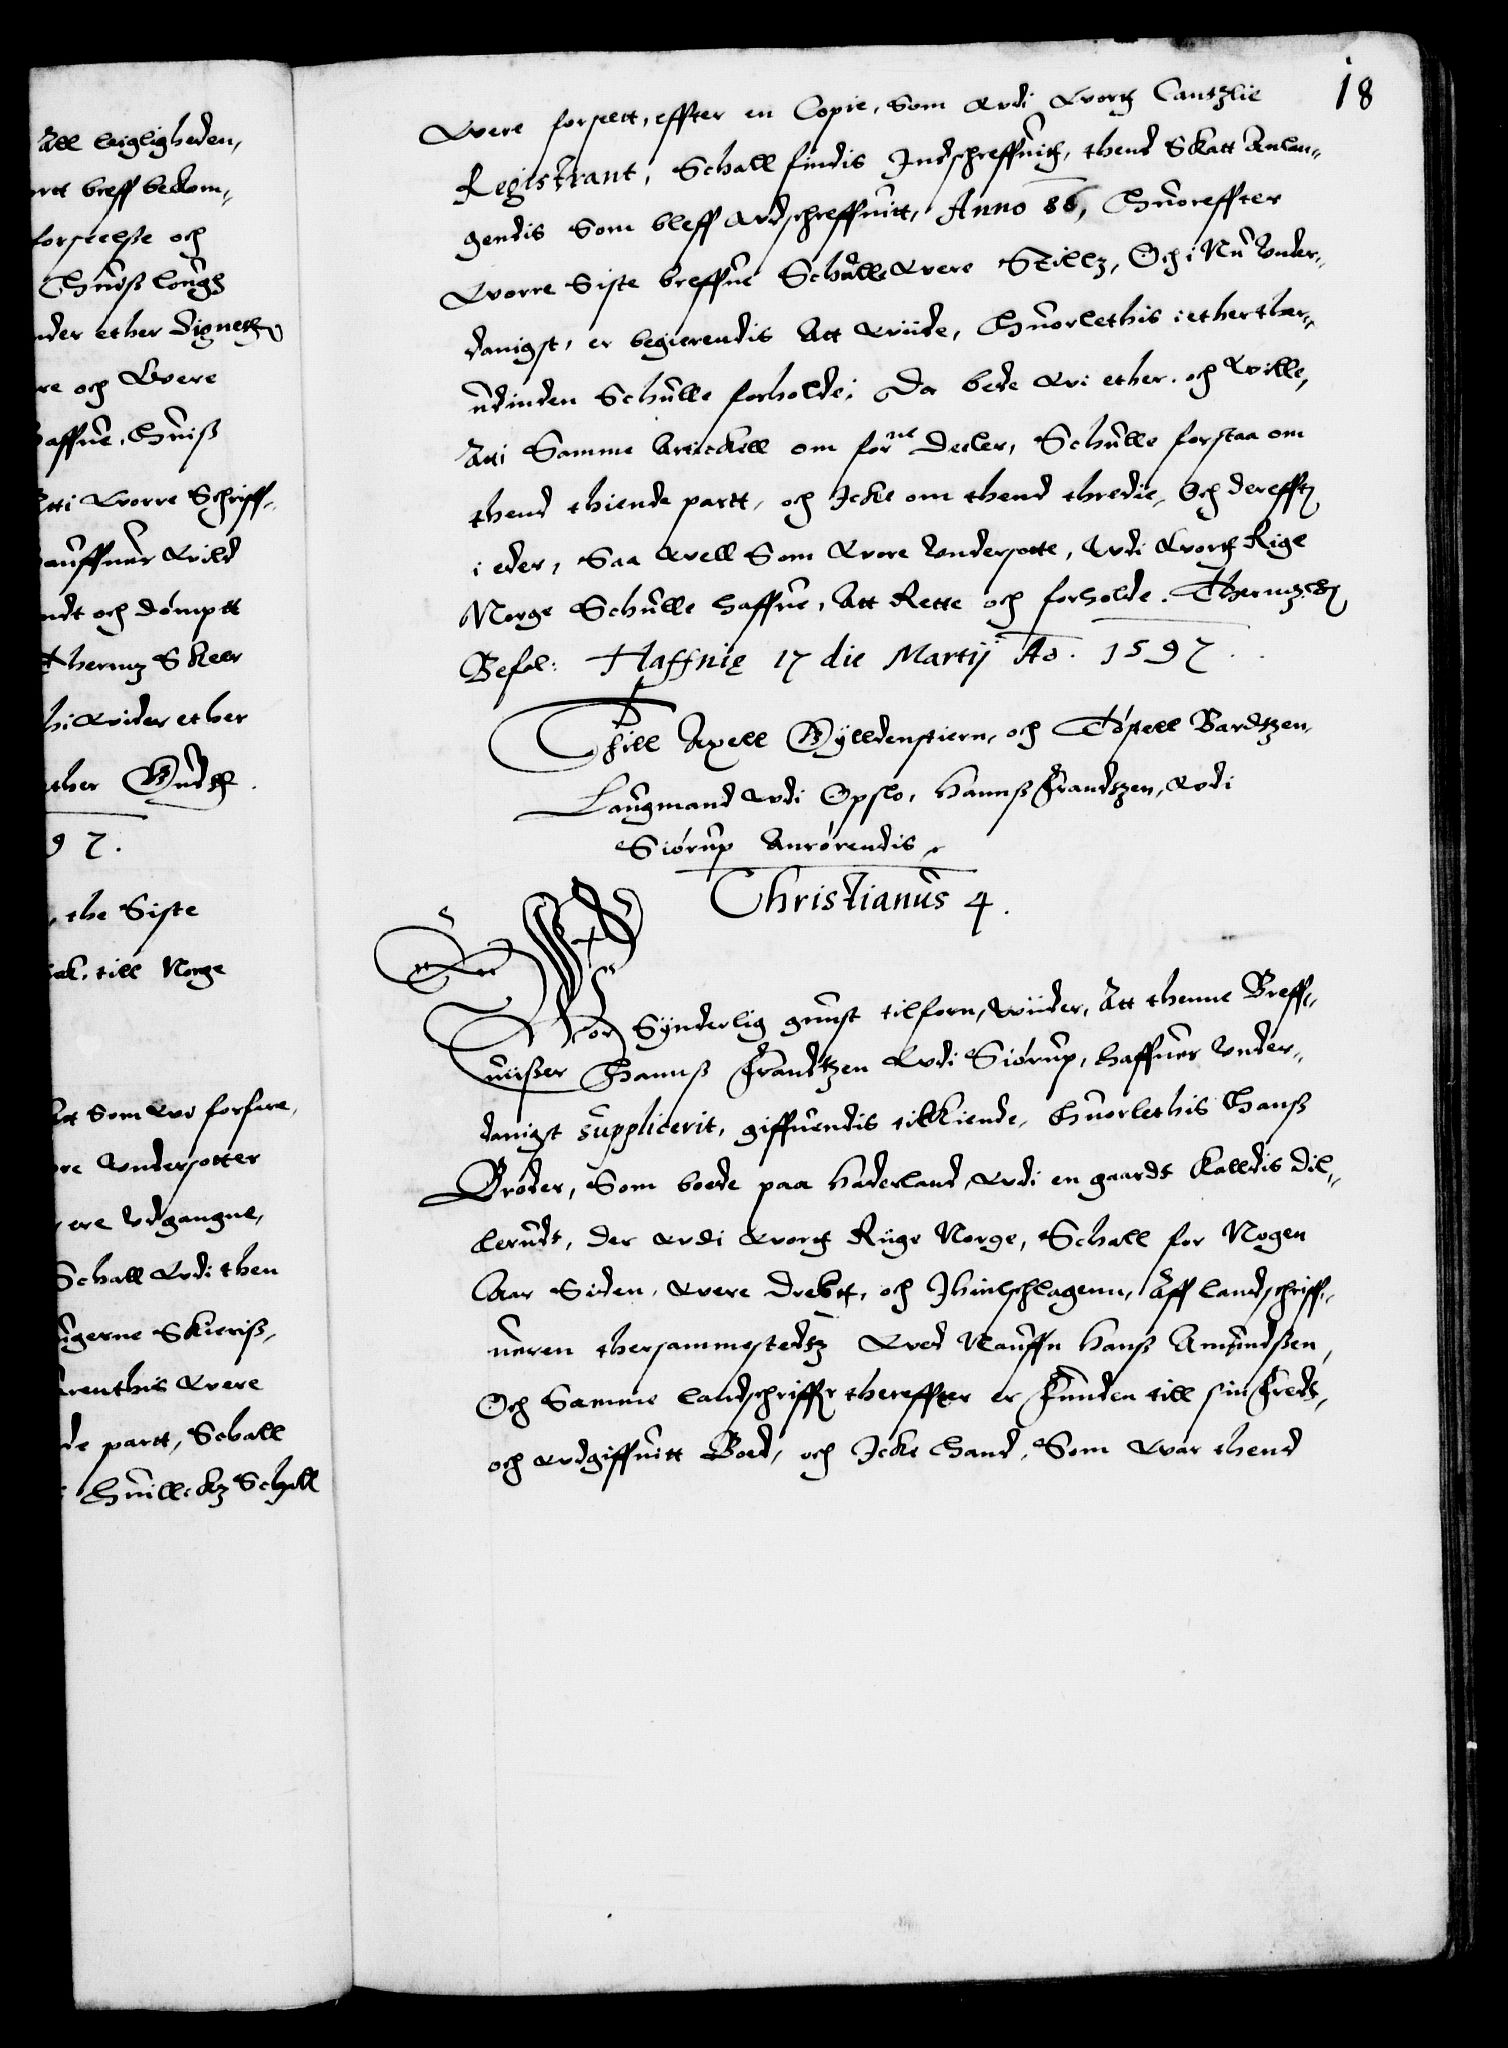 18
All leigligheden,
rtt breff bekom¬
forseelse och
Huiß lough
nder ether Digneth
re och Were
haffue, Huiß
Atti Worre Schriff¬
hauffuer Wild
ndt och dómptt
Thermz Skeer
hi Wider ether
ther Gudh.
97.
, the Siste
ak. till Norge
lt Som Wo forfare,
re Undersotter
ere Udgangne,
Schall Udi then
ugerne Skieriß,
renthis Were
de partt, Schall
Huilcktz Schall
Were forseett, effter en Copie, Som Udi Wortz Cantzlie
Registrant, Schall findis Indschreffuitz, thend Skatt Anlan¬
gendis Som bleff Udschreffuitt, Anno 86, Huoreffter
Worre Siste breffue Schulle Were Stillz, Och i Nu Under¬
danigst, er begierendis Att Wiide, Huorlethis i ether ther¬
udinden Schulle forholde; Da bede Wi ether och Wille,
Atti Samme Artickell om forne Deeler, Schulle forstaa om
thend thiende partt, och Icke om thend thredie, Och dereffter
i eder, Saa Well Som Wore Undersotte, Udi Wortz Rige
Norge Schulle haffue, Att Rette och forholde. Thermz
Befal: Haffnię 17 die Martij Ao. 1597.
Thill Axell Gylldenstiern, och Tóstell Bardtzen,
Laugmand Udi Opslo, Hanuß Frandtzen, Udi
Siórup Anrórendis
Christianus 4.
Wor Synderlig gunst tilforn, Wiider, Att thenne Breff¬
uiißer Hannß Frandtzen Udi Siórup, haffuer Under¬
danigst supplicerit, giffuendis tilkiende, Huorlethis Hanß
Broder, Som boede paa Haderland, Udi en gaardt Kalldis Dil¬
lerudt, der Udi Wortz Riige Norge, Schall for Nogen
Aar Siden, Were drebtt, och Ihielschlagenn, Aff landschriff¬
ueren thersammestedtz Wed Nauffn Hanß Amundßen,
Och Samme landschriffr thereffter er Funden till sin Fredt,
och Udgiffuitt Boed, och Icke Hand, Som War thend